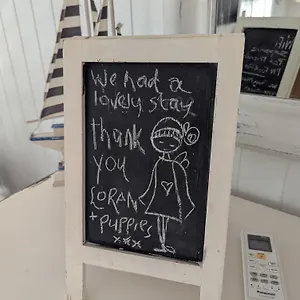 We had a
lovely stay
thank
you
LORAN
+ puppies
xxx